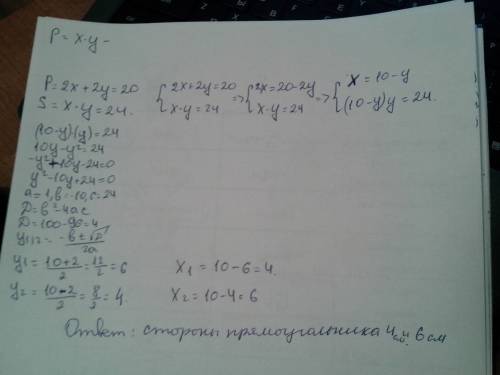 P = x·y -
P=2x+2y=20
S=x·y=24.
{2x+2y=20 x·y=24 => {2x=20-2y x·y=24 => {x=10-y (10-y)y=24.
(10-y)·(y)=24
10y-y²=24
-y²+10y-24=0
y²-10y+24=0
a=1, b=-10, c=24
D=b²-4ac
D=100-96=4
y1,2=(-b±√D)/2a
y1=(10+2)/2=12/2=6 x1=10-6=4.
y2=(10-2)/2=8/2=4. x2=10-4=6
Ответ: стороны прямоугальника 4см и 6см